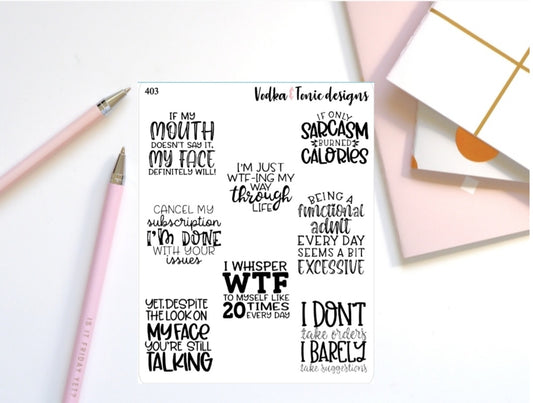 403
Vodka & Tonic designs
IF MY
MOUTH
DOESN'T SAY IT,
MY FACE
DEFINITELY WILL!
IF ONLY
SARCASM
BURNED
CALORIES
I'M JUST
WTF-ING MY
WAY
through
LIFE
CANCEL MY
subscription
I'M DONE
WITH YOUR
issues
BEING A
functional
adult
EVERY DAY
SEEMS A BIT
EXCESSIVE
I WHISPER
WTF
TO MYSELF LIKE
20 TIMES
EVERY DAY
YET, DESPITE
THE LOOK ON
MY FACE
YOU'RE STILL
TALKING
I DON'T
take orders
I BARELY
take suggestions
IS IT FRIDAY YET?